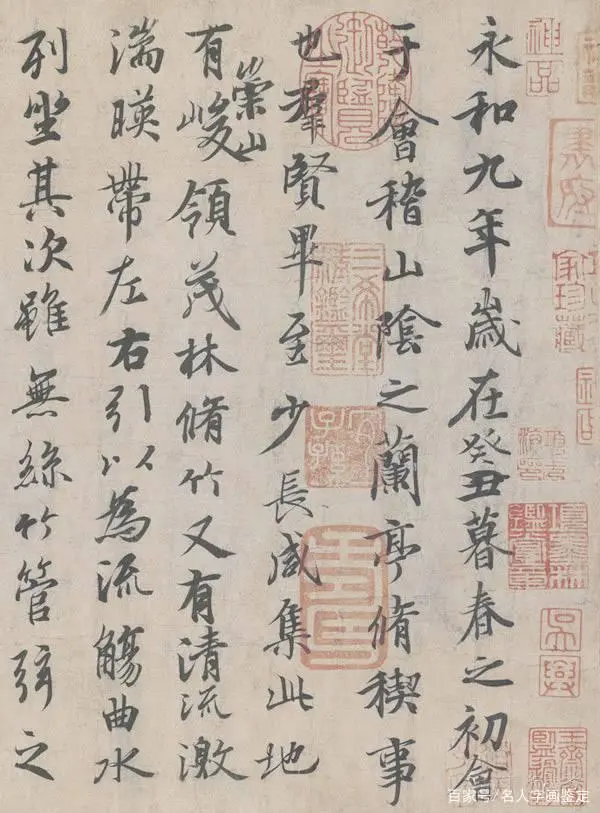 永和九年歲在癸丑暮春之初會
于會稽山陰之蘭亭脩稧事
也羣賢畢至少長咸集此地
有崇山峻領茂林脩竹又有清流激
湍暎帶左右引以為流觴曲水
列坐其次雖無絲竹管弦之
神品
家珍藏
吳興
三希堂精鑑璽
宜子孫
百家号/名人字画鉴定